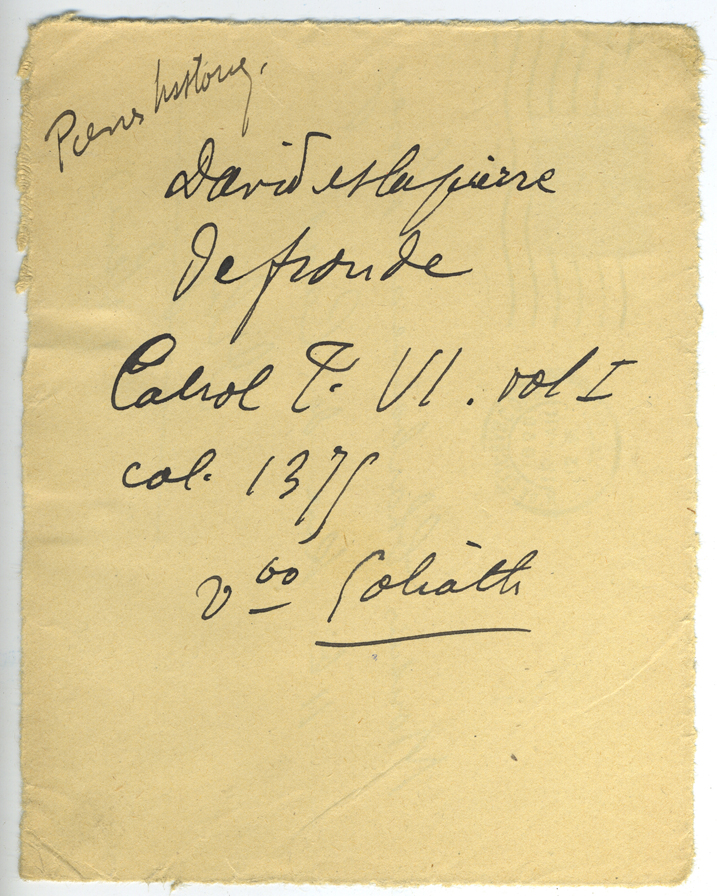 Pierres historiq.
David et la pierre
de fronde
Cabrol T. VI. vol I
col. 1375
v^bo Goliath